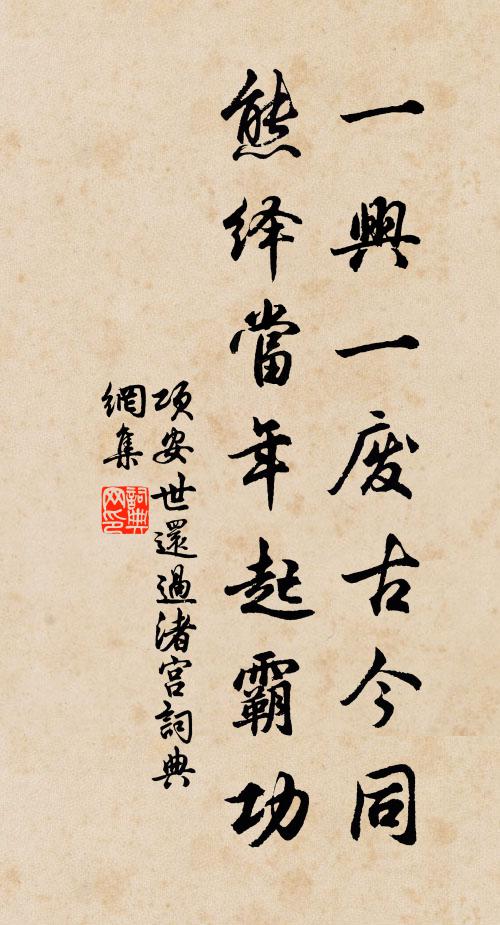 一興一废古今同
熊绎當年起霸功
項安世還過渚宮詞典
網集
詞典
网印